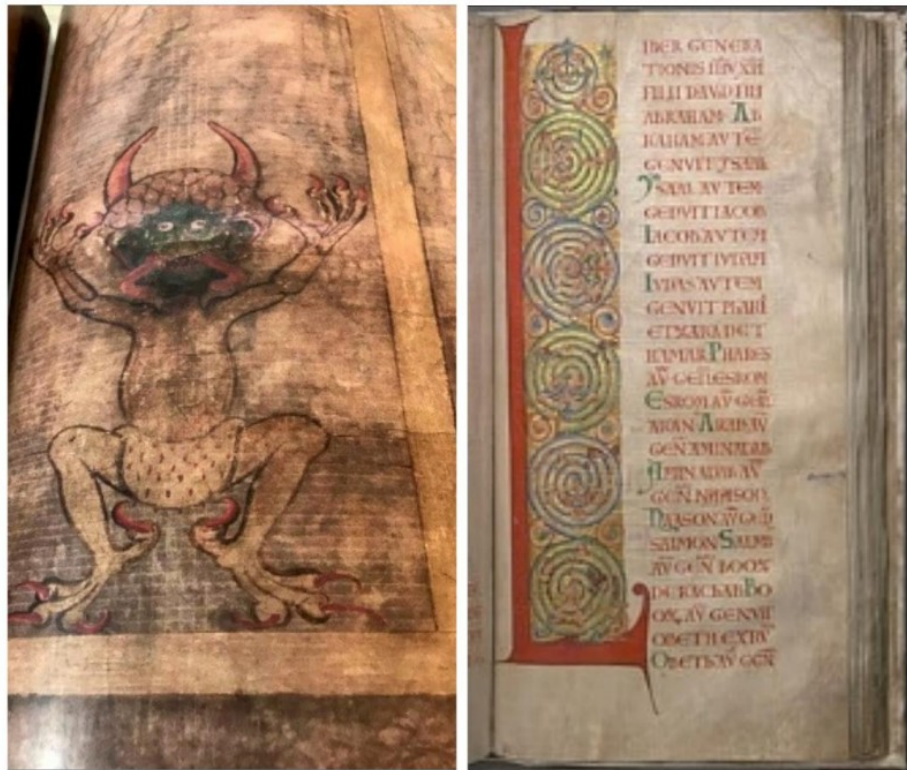 IBER GENERA
TIONIS IHV XPI
FILII DAVID FILI
ABRAHAM AB
RAHAM AVTE
GENVIT YSAAC
YSAAC AVTEM
GENVIT IACOB
IACOB AVTEM
GENVIT IVDAM
IVDAS AVTEM
GENVIT PHARE
ET ZARA DE T
HAMAR PHARES
AV GEN ESROM
ESROM AV GEN
ARAM ARAM AV
GEN AMINADAB
AMINADAB AV
GEN NAASON
NAASON AV GEN
SALMON SALMO
AV GEN BOOZ
DE RACHAB BO
OZ AV GENVIT
OBETH EX RV
OBETH AV GEN